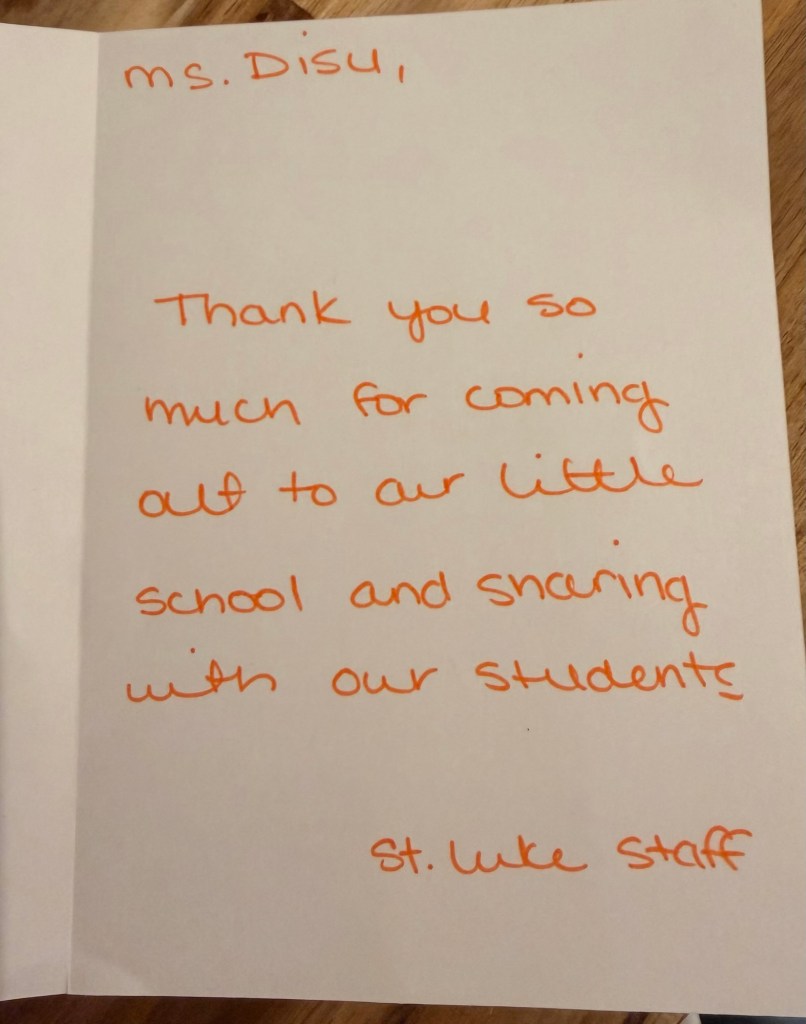 Ms. Disu,
Thank you so
much for coming
out to our little
school and sharing
with our students
St. Luke Staff